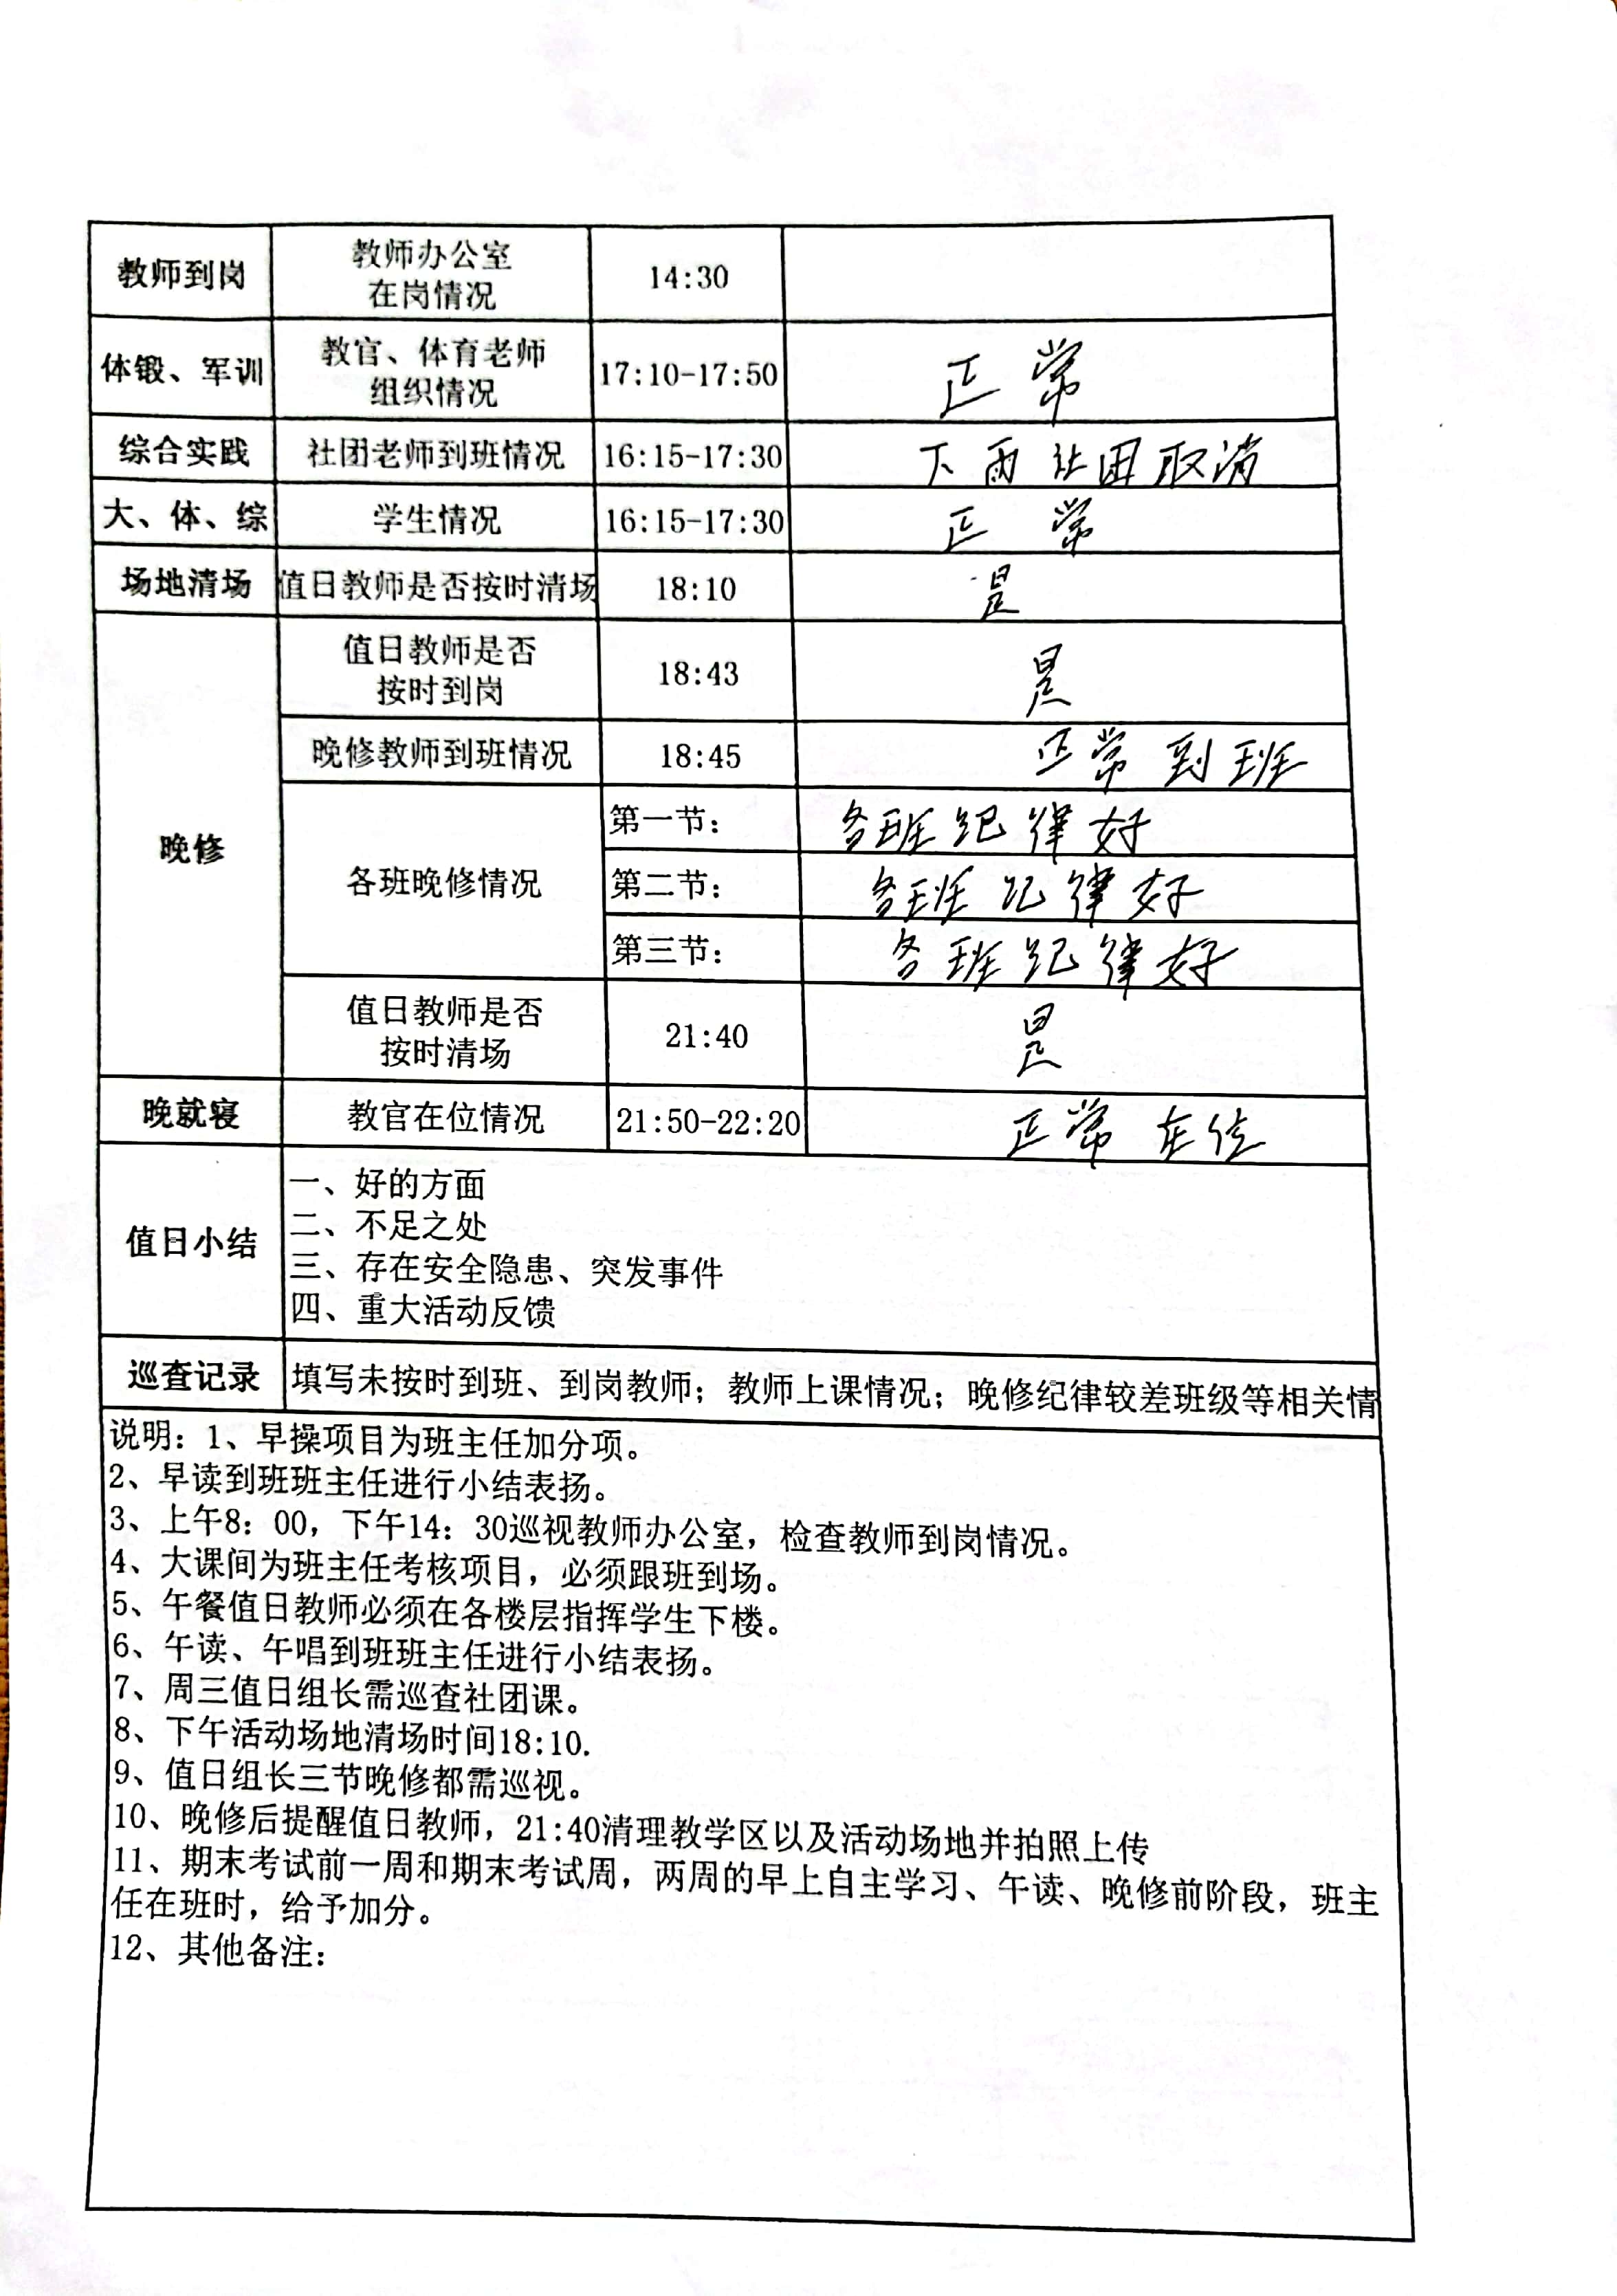 教师到岗 教师办公室 在岗情况 14:30
体锻、军训 教官、体育老师 组织情况 17:10-17:50 正常
综合实践 社团老师到班情况 16:15-17:30 下雨社团取消
大、体、综 学生情况 16:15-17:30 正常
场地清场 值日教师是否按时清场 18:10 是
晚修 值日教师是否 按时到岗 18:43 是
晚修教师到班情况 18:45 正常到班
各班晚修情况 第一节： 各班纪律好
第二节： 各班纪律好
第三节： 各班纪律好
值日教师是否 按时清场 21:40 是
晚就寝 教官在位情况 21:50-22:20 正常在位
值日小结
一、好的方面
二、不足之处
三、存在安全隐患、突发事件
四、重大活动反馈
巡查记录 填写未按时到班、到岗教师；教师上课情况；晚修纪律较差班级等相关情
说明：1、早操项目为班主任加分项。
2、早读到班班主任进行小结表扬。
3、上午8：00，下午14：30巡视教师办公室，检查教师到岗情况。
4、大课间为班主任考核项目，必须跟班到场。
5、午餐值日教师必须在各楼层指挥学生下楼。
6、午读、午唱到班班主任进行小结表扬。
7、周三值日组长需巡查社团课。
8、下午活动场地清场时间18:10.
9、值日组长三节晚修都需巡视。
10、晚修后提醒值日教师，21:40清理教学区以及活动场地并拍照上传
11、期末考试前一周和期末考试周，两周的早上自主学习、午读、晚修前阶段，班主
任在班时，给予加分。
12、其他备注：